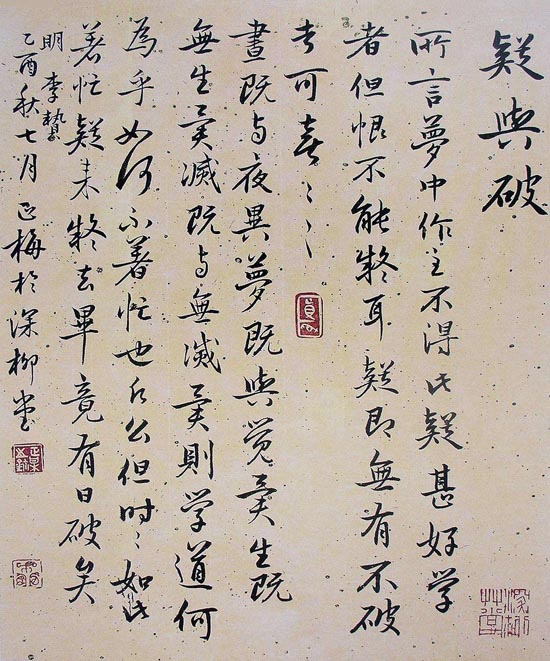 疑與破
所言夢中作主不得此疑甚好学
者但恨不能疑耳疑即無有不破
者可喜〻〻
晝既与夜異夢既與觉異生既
無生異滅既与無滅異則学道何
為乎如何不著忙也願公但時〻如此
著忙疑来疑去畢竟有日破矣
明李贄
乙酉秋七月正梅於深柳堂